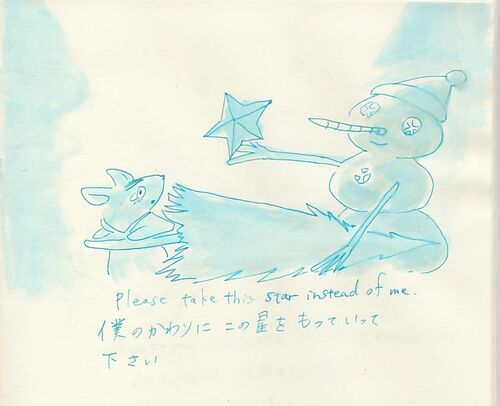 Please take this star instead of me.
僕のかわりに この星をもっていって
下さい